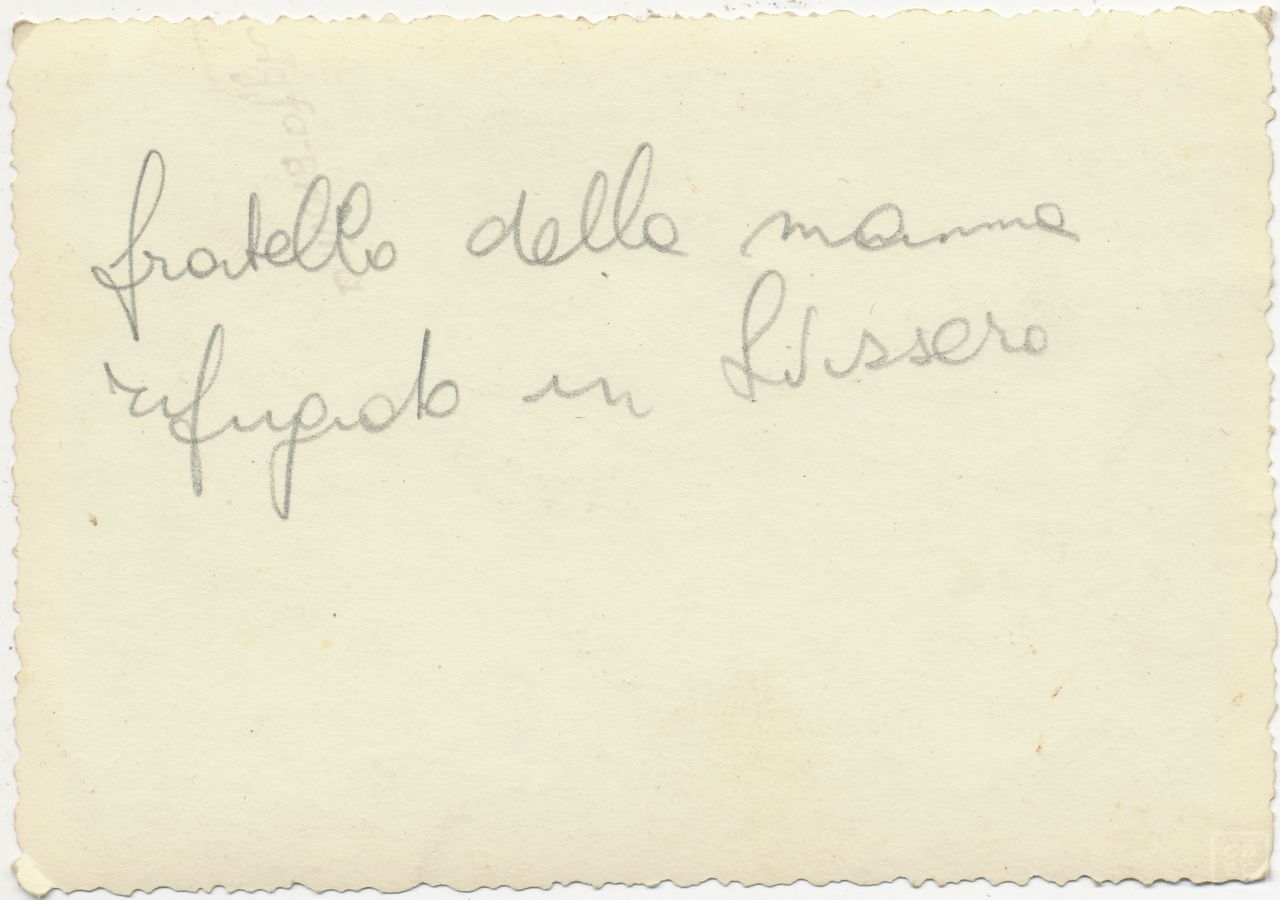 fratello della mamma
rifugiato in Svissera